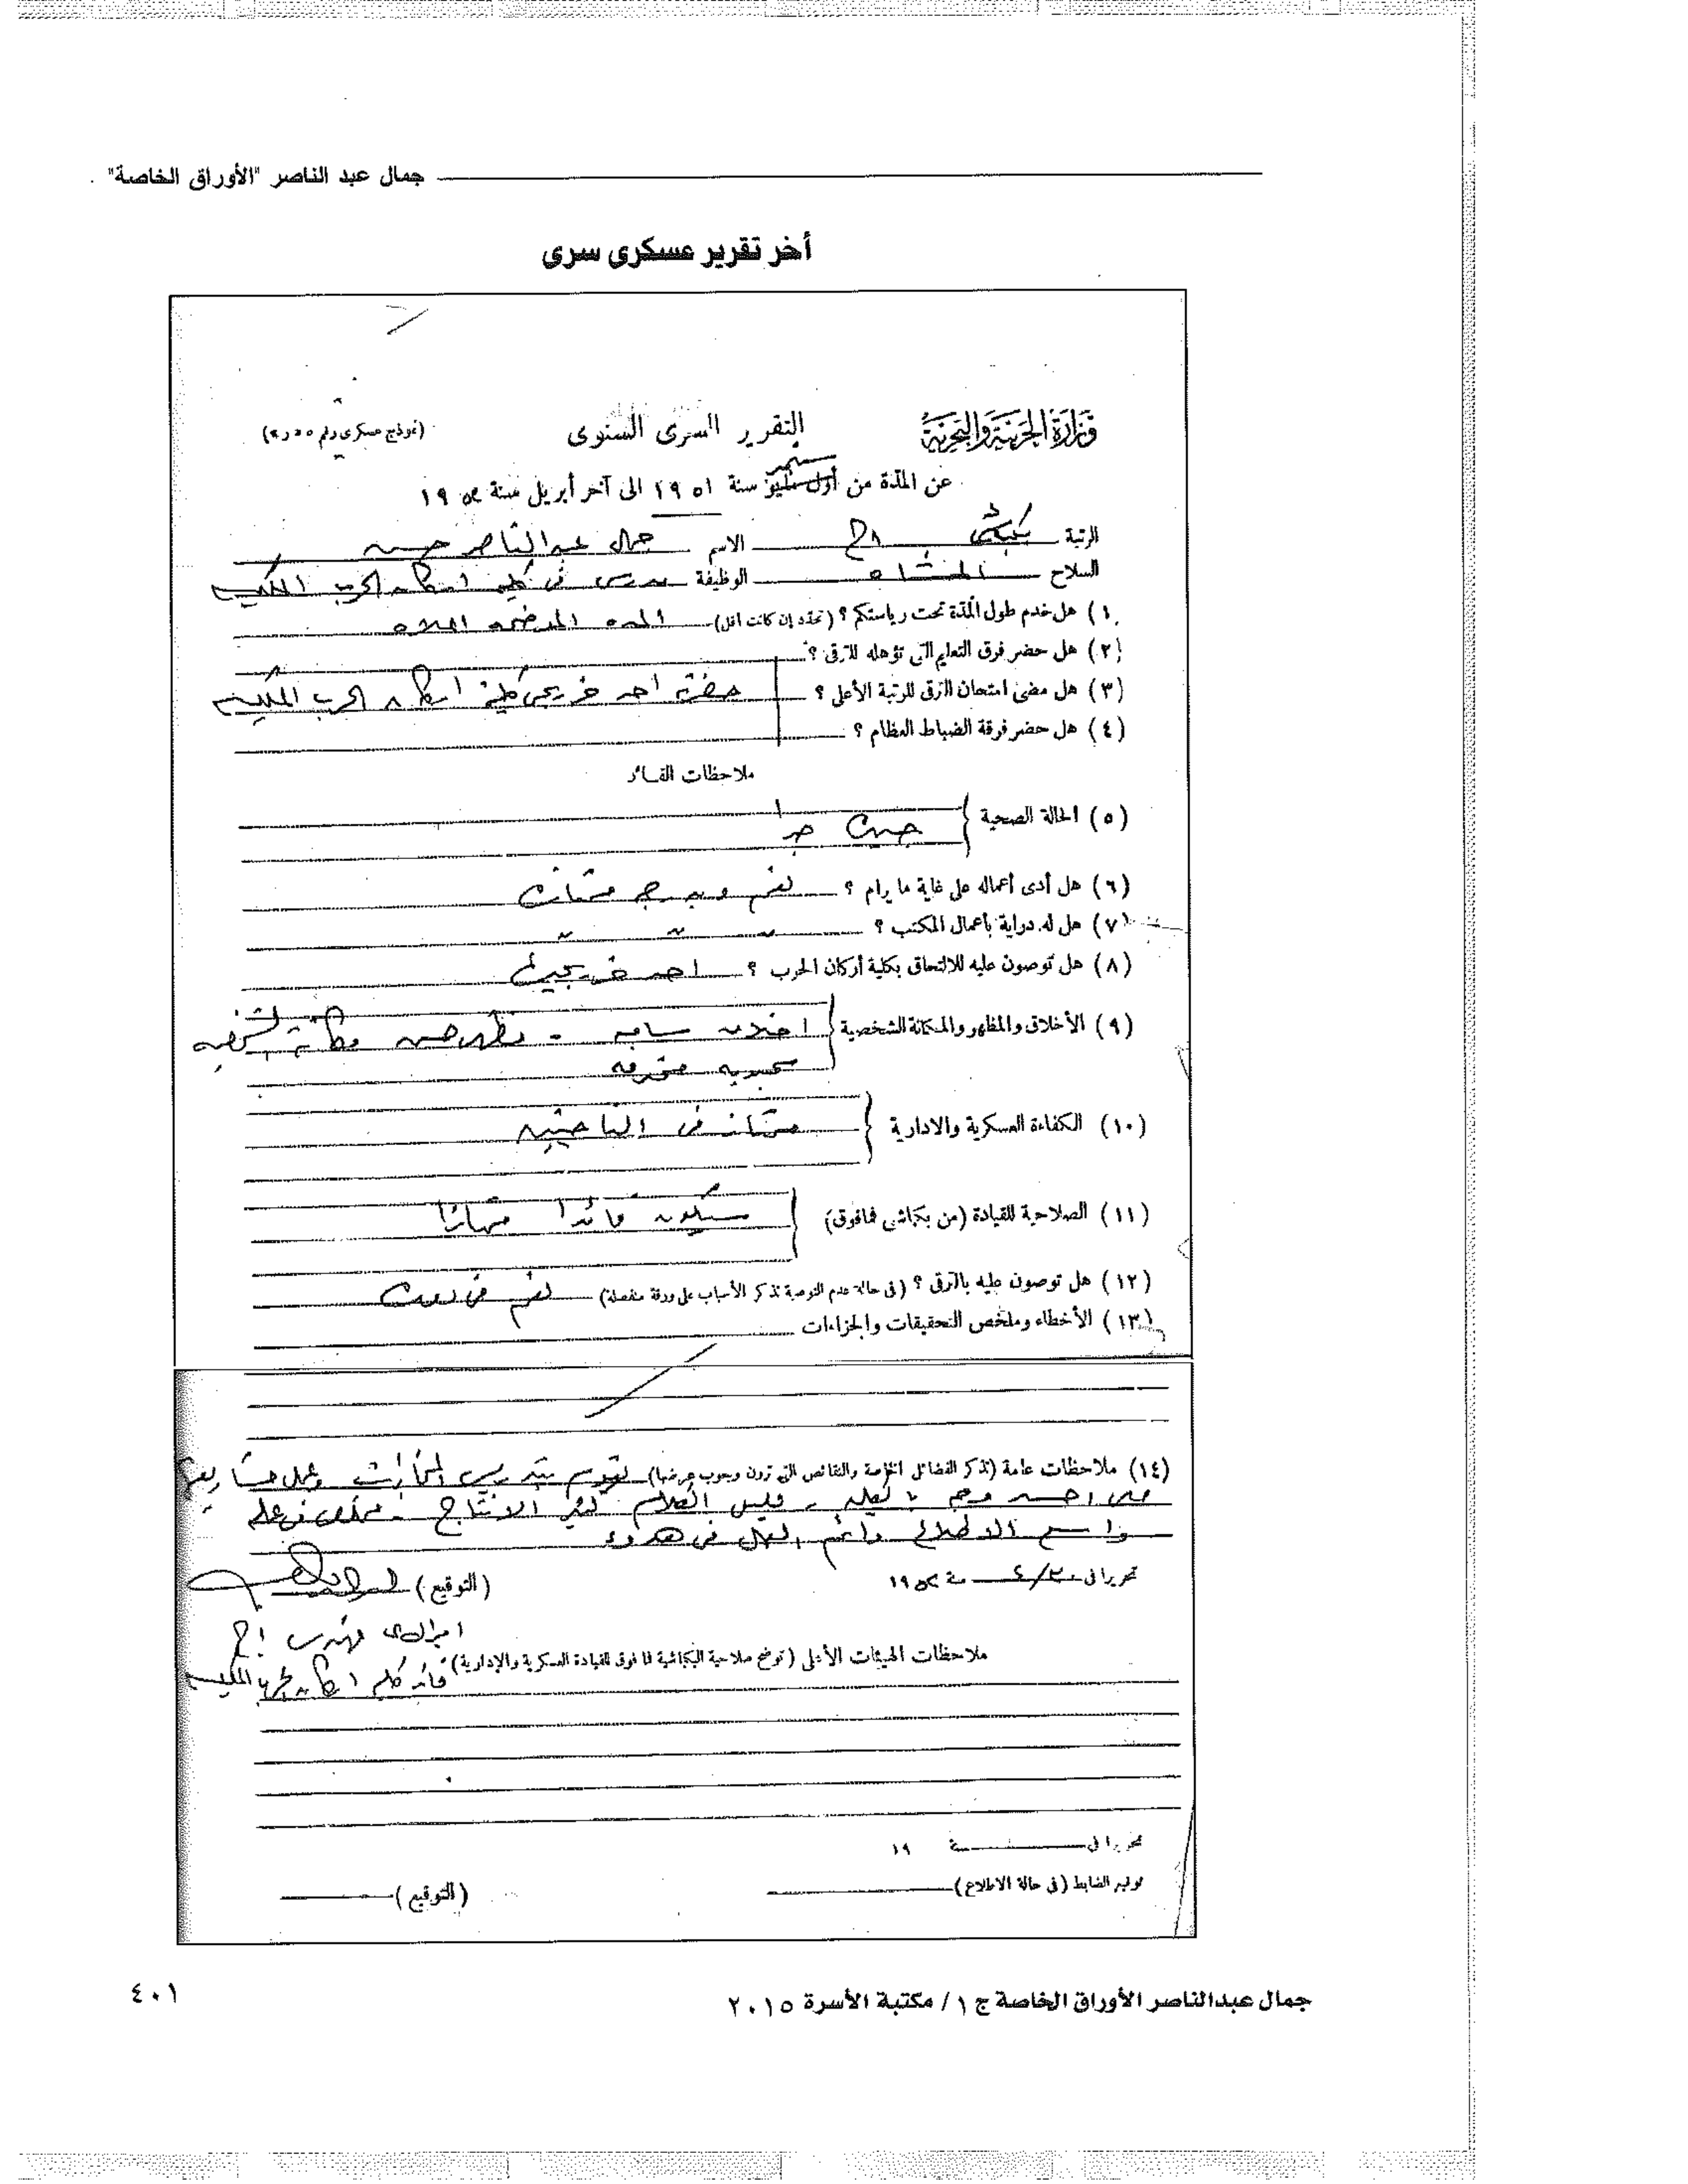 جمال عبد الناصر "الأوراق الخاصة"
أخر تقرير عسكرى سرى
وزارة الحربية والبحرية
التقرير السرى السنوى
(نموذج عسكرى رقم
عن المدة من أول سبتمبر سنة ١٩٥١ الى آخر أبريل سنة ١٩٥٢
الرتبة بكباشى أ ح الاسم جمال عبد الناصر حسين
السلاح المشاه الوظيفة مدرس فى كلية اركان الحرب الملكية
(١) هل خدم طول المدة تحت رياستكم ؟ (تحدد إن كانت أقل) المده الموضحه اعلاه
(٢) هل حضر فرق التعليم التى تؤهله للترقى ؟
(٣) هل مضى امتحان الترقى للرتبة الأعلى ؟ حضرته احد خريجى كلية اركان الحرب الملكية
(٤) هل حضر فرقة الضباط العظام ؟
ملاحظات القائد
(٥) الحالة الصحية } جيدة جدا
(٦) هل أدى أعماله على غاية ما يرام ؟ نعم وبدرجه ممتازة
(٧) هل له دراية بأعمال المكتب ؟ " " "
(٨) هل توصون عليه للالتحاق بكلية أركان الحرب ؟ احد خريجيها
(٩) الأخلاق والمظهر والمكانة الشخصية } اخلاق ساميه - مظهر حسن
محبوبه محترمه
(١٠) الكفاءة العسكرية والادارية } ممتاز فى الناحيتين
(١١) الصلاحية للقيادة (من بكباشى فما فوق) } سيكون قائدا ممتازا
(١٢) هل توصون عليه بالترقى ؟ (فى حالة عدم التوصية تذكر الأسباب على ورقة منفصلة) نعم
(١٣) الأخطاء وملخص التحقيقات والجزاءات
(١٤) ملاحظات عامة (تذكر الفضائل الخاصة والنقائص التى ترون وجوب عرضها) يقوم بتدريس المخابرات وعمل مشاريعها
على احسن وجه بالكليه - قليل الكلام كثير الانتاج - مخلص فى عمله
واسع الاطلاع دائم العمل فى هدوء
تحريرا فى ٣٠/٤ سنة ١٩٥٢ (التوقيع)
ملاحظات الهيئات الأعلى (توضح صلاحية البكباشية فما فوق للقيادة العسكرية والإدارية)
قائد كلية اركان الحرب الملكية
تحريرا فى سنة ١٩
توقيع الضابط (فى حالة الاطلاع) (التوقيع)
جمال عبدالناصر الأوراق الخاصة ج ١ / مكتبة الأسرة ٢٠١٥
٤٠١